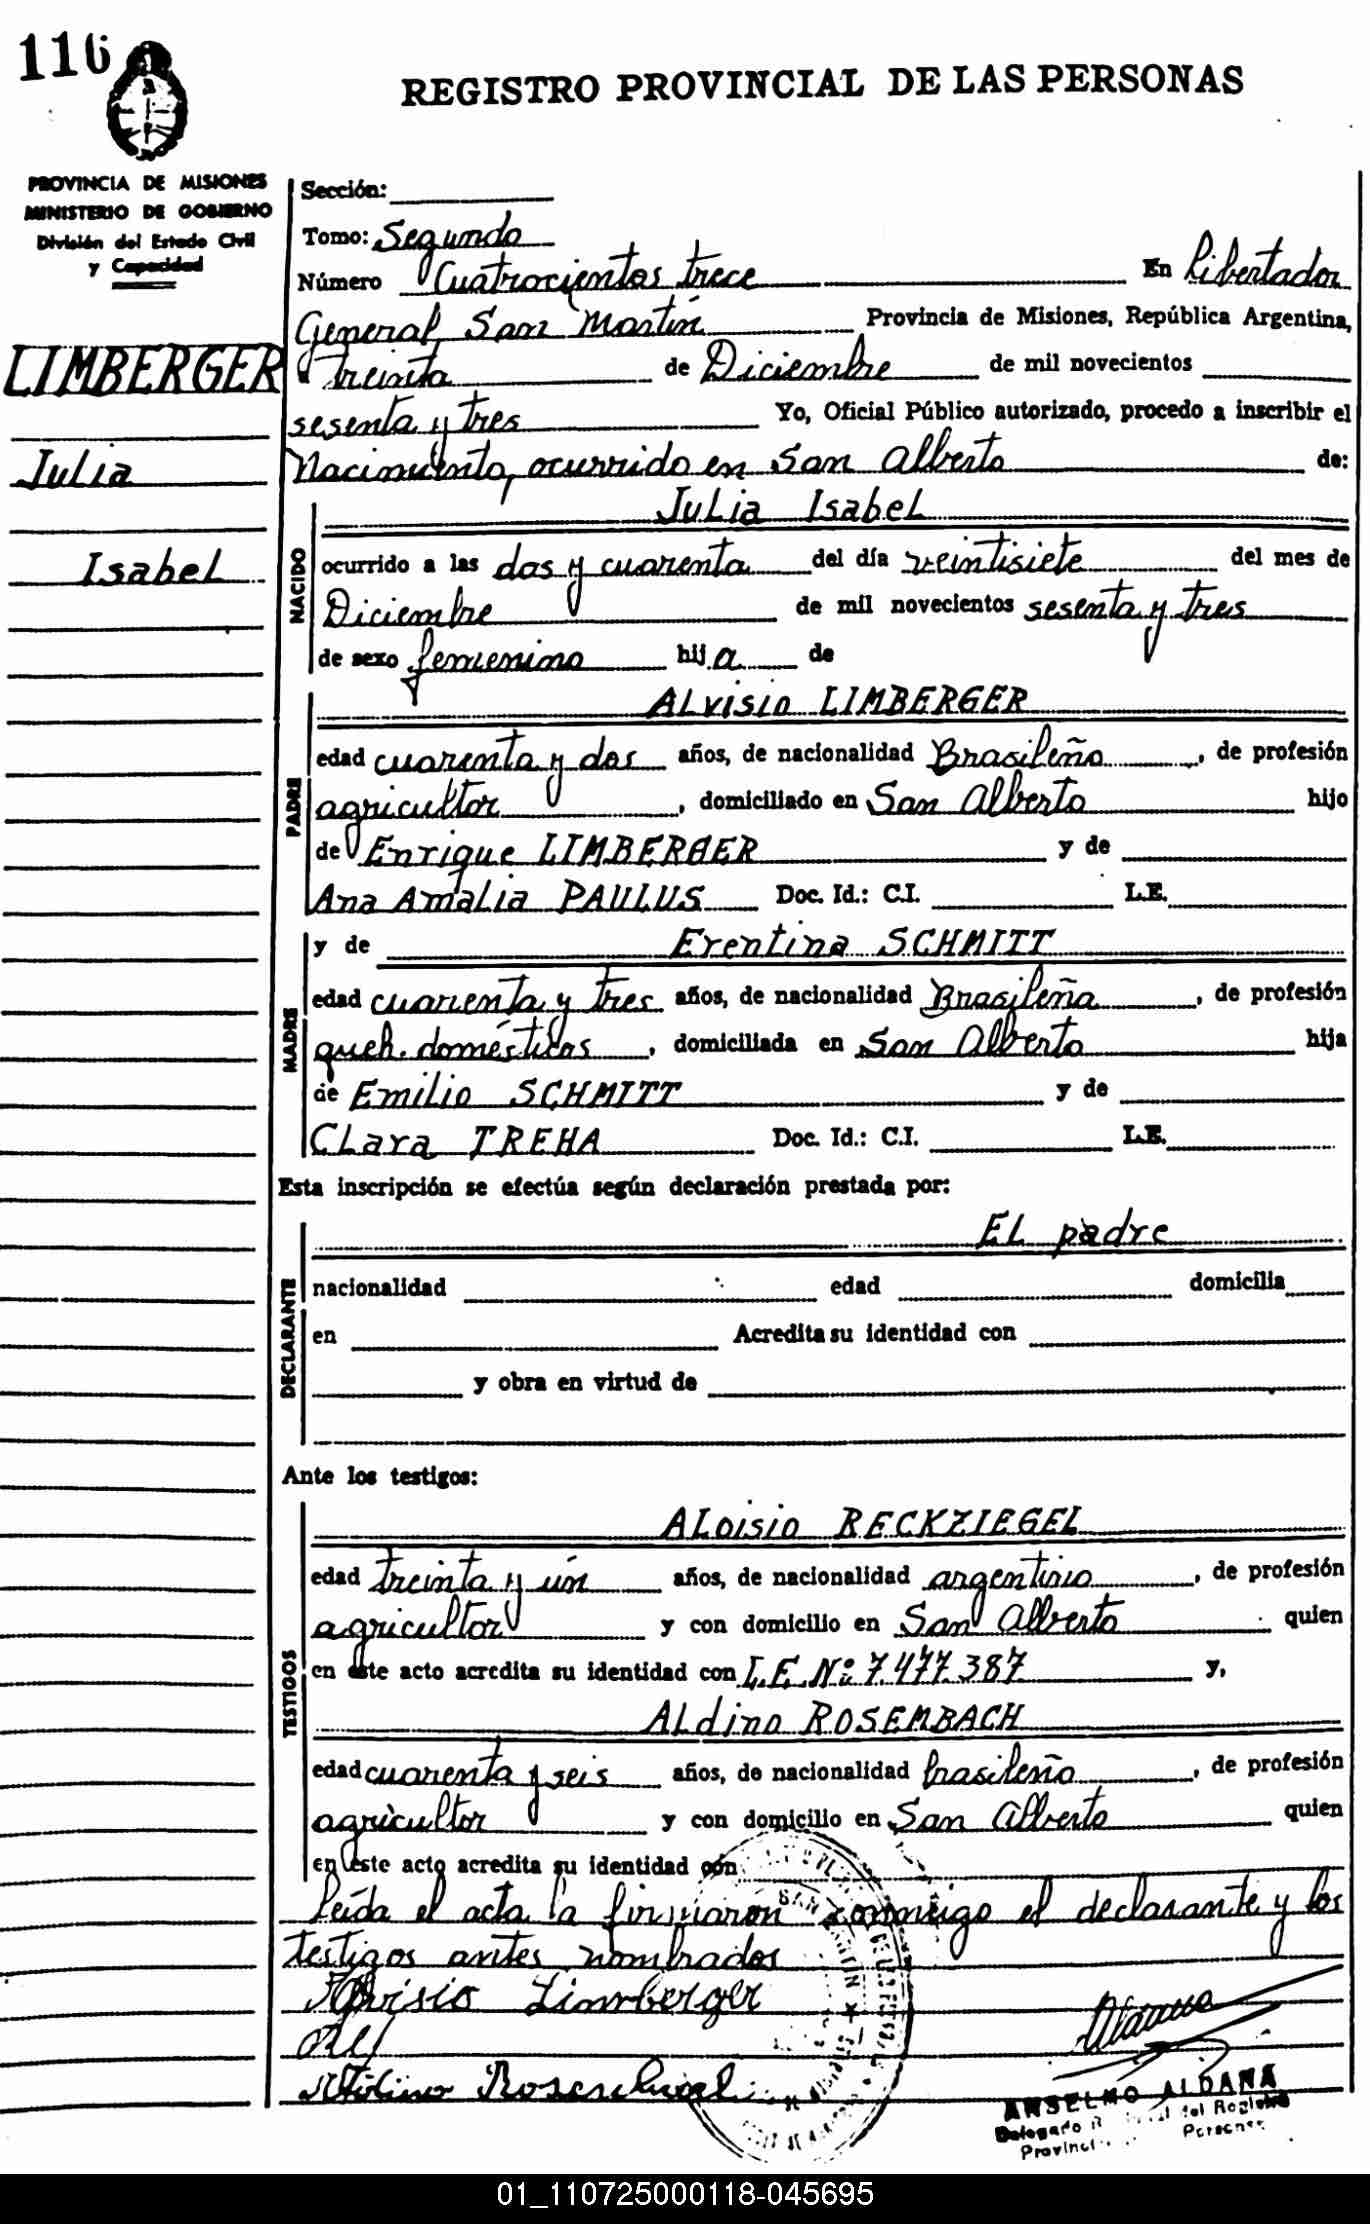 116
REGISTRO PROVINCIAL DE LAS PERSONAS
PROVINCIA DE MISIONES
MINISTERIO DE GOBIERNO
División del Estado Civil
y Capacidad
LIMBERGER
Julia
Isabel
Sección:
Tomo: Segundo
Número Cuatrocientos trece En Libertador
General San Martín Provincia de Misiones, República Argentina,
a treinta de Diciembre de mil novecientos
sesenta y tres Yo, Oficial Público autorizado, procedo a inscribir el
Nacimiento, ocurrido en San Alberto de:
NACIDO
Julia Isabel
ocurrido a las dos y cuarenta del día veintisiete del mes de
Diciembre de mil novecientos sesenta y tres
de sexo femenino hij a de
PADRE
Alvisio LIMBERGER
edad cuarenta y dos años, de nacionalidad Brasileño, de profesión
agricultor, domiciliado en San Alberto hijo
de Enrique LIMBERGER y de
Ana Amalia PAULUS Doc. Id.: C.I. L.E.
MADRE
y de Erentina SCHMITT
edad cuarenta y tres años, de nacionalidad Brasileña, de profesión
queh. domésticos, domiciliada en San Alberto hija
de Emilio SCHMITT y de
Clara TREHA Doc. Id.: C.I. L.E.
Esta inscripción se efectúa según declaración prestada por:
DECLARANTE
El padre
nacionalidad edad domicilia
en Acredita su identidad con
y obra en virtud de
Ante los testigos:
TESTIGOS
Aloisio RECKZIEGEL
edad treinta y ún años, de nacionalidad argentino, de profesión
agricultor y con domicilio en San Alberto quien
en este acto acredita su identidad con L.E. Nº 7.477.387 y,
Aldino ROSEMBACH
edad cuarenta y seis años, de nacionalidad brasileño, de profesión
agricultor y con domicilio en San Alberto quien
en este acto acredita su identidad con
Leída el acta la firmaron conmigo el declarante y los
testigos antes nombrados
Alvisio Limberger
ANSELMO ALDANA
Delegado del Registro
Personas
01_110725000118-045695